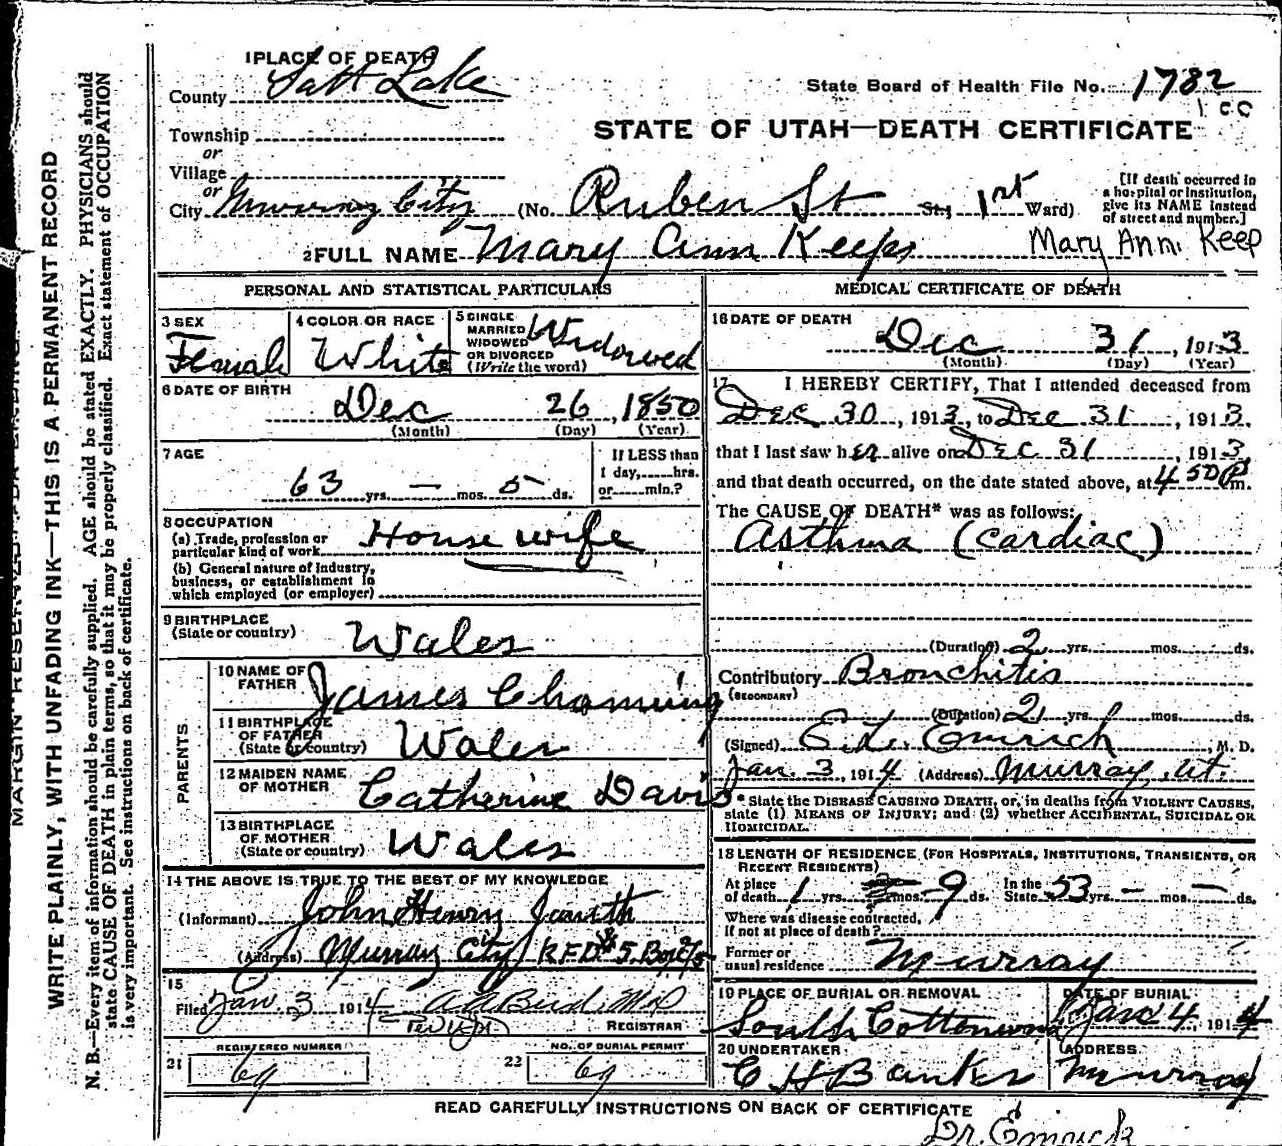 MARGIN RESERVED FOR BINDING.
WRITE PLAINLY, WITH UNFADING INK—THIS IS A PERMANENT RECORD
N. B.—Every item of information should be carefully supplied. AGE should be stated EXACTLY. PHYSICIANS should
state CAUSE OF DEATH in plain terms, so that it may be properly classified. Exact statement of OCCUPATION
is very important. See instructions on back of certificate.
1 PLACE OF DEATH
County Salt Lake
State Board of Health File No. 1782
1 CC
Township
or
Village
or
STATE OF UTAH—DEATH CERTIFICATE
City Murray City (No. Ruben St St; 1st Ward)
[If death occurred in
a hospital or institution,
give its NAME instead
of street and number.]
2 FULL NAME Mary Ann Keeps
Mary Ann Keep
PERSONAL AND STATISTICAL PARTICULARS
3 SEX
Female
4 COLOR OR RACE
White
5 SINGLE
MARRIED
WIDOWED
OR DIVORCED
(Write the word)
Widowed
6 DATE OF BIRTH
Dec 26, 1850
(Month) (Day) (Year)
7 AGE
63 yrs. — mos. 5 ds.
If LESS than
1 day, hrs.
or min.?
8 OCCUPATION
(a) Trade, profession or
particular kind of work
House wife
(b) General nature of industry,
business, or establishment in
which employed (or employer)
9 BIRTHPLACE
(State or country)
Wales
PARENTS
10 NAME OF
FATHER
James
11 BIRTHPLACE
OF FATHER
(State or country)
Wales
12 MAIDEN NAME
OF MOTHER
Catherine Davis
13 BIRTHPLACE
OF MOTHER
(State or country)
Wales
14 THE ABOVE IS TRUE TO THE BEST OF MY KNOWLEDGE
(Informant) John Henry
(Address) Murray City R.F.D. #5, Box
15
Filed Jan. 3 1914
REGISTRAR
21
REGISTERED NUMBER
69
22
NO. OF BURIAL PERMIT
69
MEDICAL CERTIFICATE OF DEATH
16 DATE OF DEATH
Dec 31, 1913
(Month) (Day) (Year)
17
I HEREBY CERTIFY, That I attended deceased from
Dec 30, 1913, to Dec 31, 1913,
that I last saw her alive on Dec 31, 1913,
and that death occurred, on the date stated above, at 4 50 P m.
The CAUSE OF DEATH* was as follows:
Asthma (cardiac)
(Duration) 2 yrs. mos. ds.
Contributory Bronchitis
(SECONDARY)
(Duration) 2 yrs. mos. ds.
(Signed) Emrich, M. D.
Jan. 3, 1914 (Address) Murray, Ut.
*State the DISEASE CAUSING DEATH, or, in deaths from VIOLENT CAUSES,
state (1) MEANS OF INJURY; and (2) whether ACCIDENTAL, SUICIDAL OR
HOMICIDAL.
18 LENGTH OF RESIDENCE (FOR HOSPITALS, INSTITUTIONS, TRANSIENTS, OR
RECENT RESIDENTS)
At place
of death 1 yrs. mos. 9 ds.
In the
State 53 yrs. — —ds.
Where was disease contracted,
if not at place of death?
Former or
usual residence Murray
19 PLACE OF BURIAL OR REMOVAL
South Cottonwood
DATE OF BURIAL
Jan 4, 1914
20 UNDERTAKER
C H Banks
ADDRESS
Murray
READ CAREFULLY INSTRUCTIONS ON BACK OF CERTIFICATE
Dr. Emrick